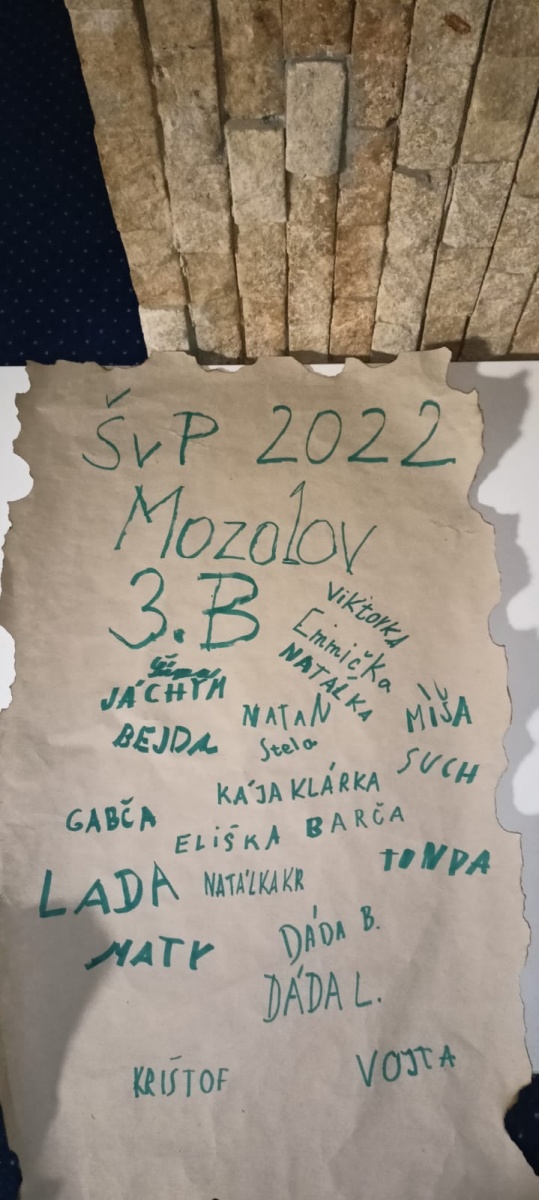 ŠvP 2022
Mozolov
3.B
Viktorka
Emmička
NATÁLKA
JÁCHYM
NATAN
MÍŠA
BEJDA
Stela
SUCH
KÁJA KLÁRKA
GABČA
ELIŠKA BARČA
TONDA
LADA NATÁLKA KR
MATY
DÁDA B.
DÁDA L.
KRIŠTOF
VOJTA